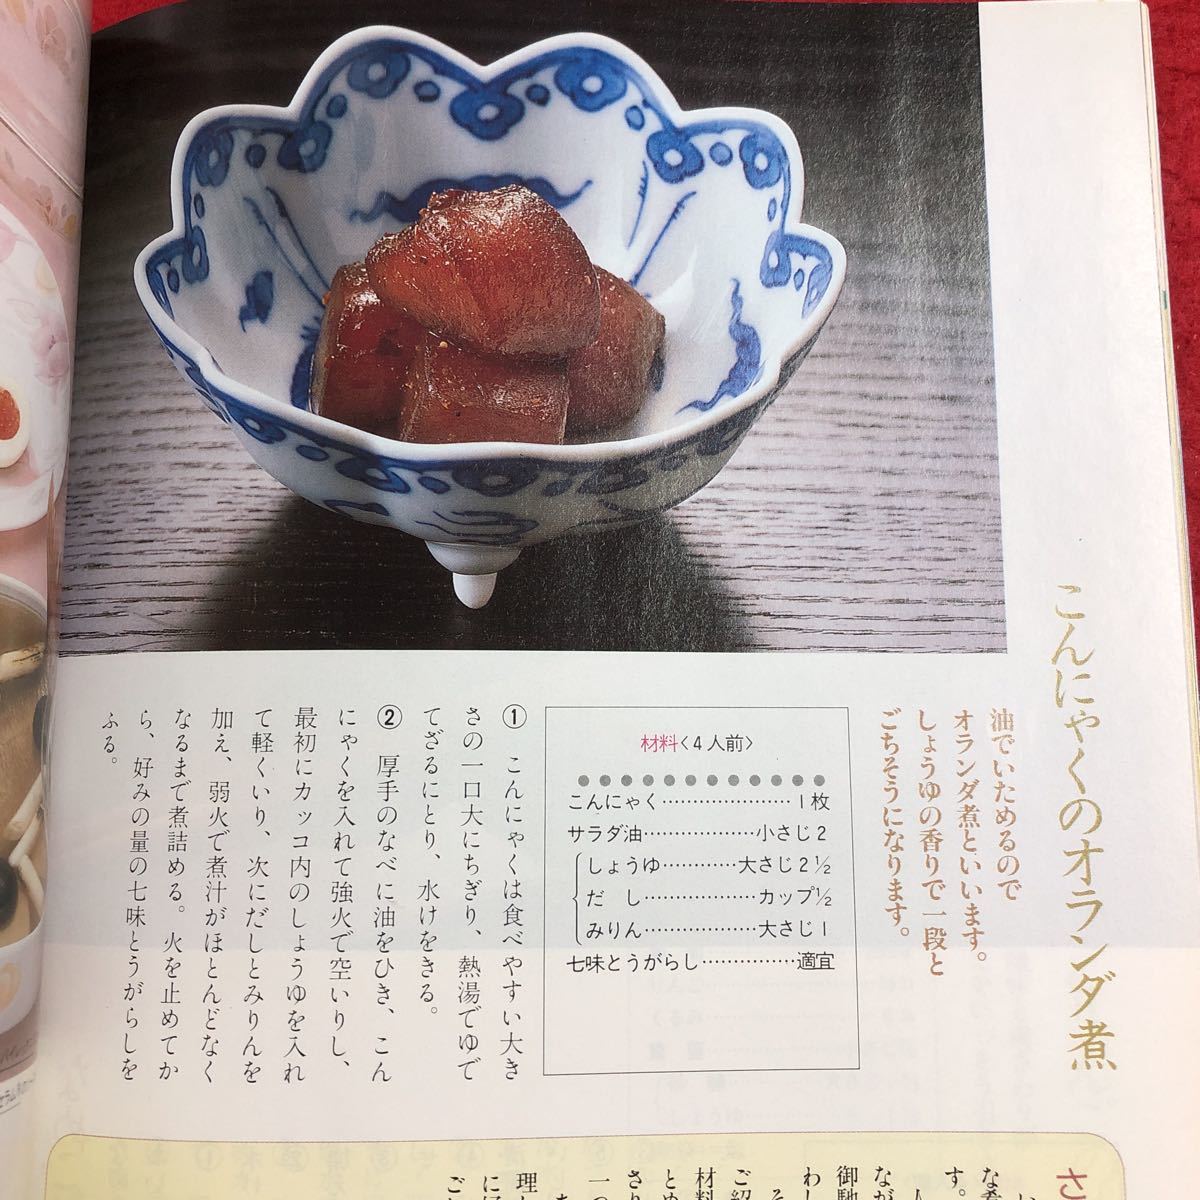 こんにゃくのオランダ煮
油でいためるので
オランダ煮といいます。
しょうゆの香りで一段と
ごちそうになります。
材料〈4人前〉
こんにゃく……………………1枚
サラダ油………………小さじ2
しょうゆ…………大さじ2½
だし………………カップ½
みりん………………大さじ1
七味とうがらし……………適宜
① こんにゃくは食べやすい大き
さの一口大にちぎり、熱湯でゆで
てざるにとり、水けをきる。
② 厚手のなべに油をひき、こん
にゃくを入れて強火で空いりし、
最初にカッコ内のしょうゆを入れ
て軽くいり、次にだしとみりんを
加え、弱火で煮汁がほとんどなく
なるまで煮詰める。火を止めてか
ら、好みの量の七味とうがらしを
ふる。
さ
す。
なが
御馳
わし
そ
ご紹
材料
とめ
さり
一つ